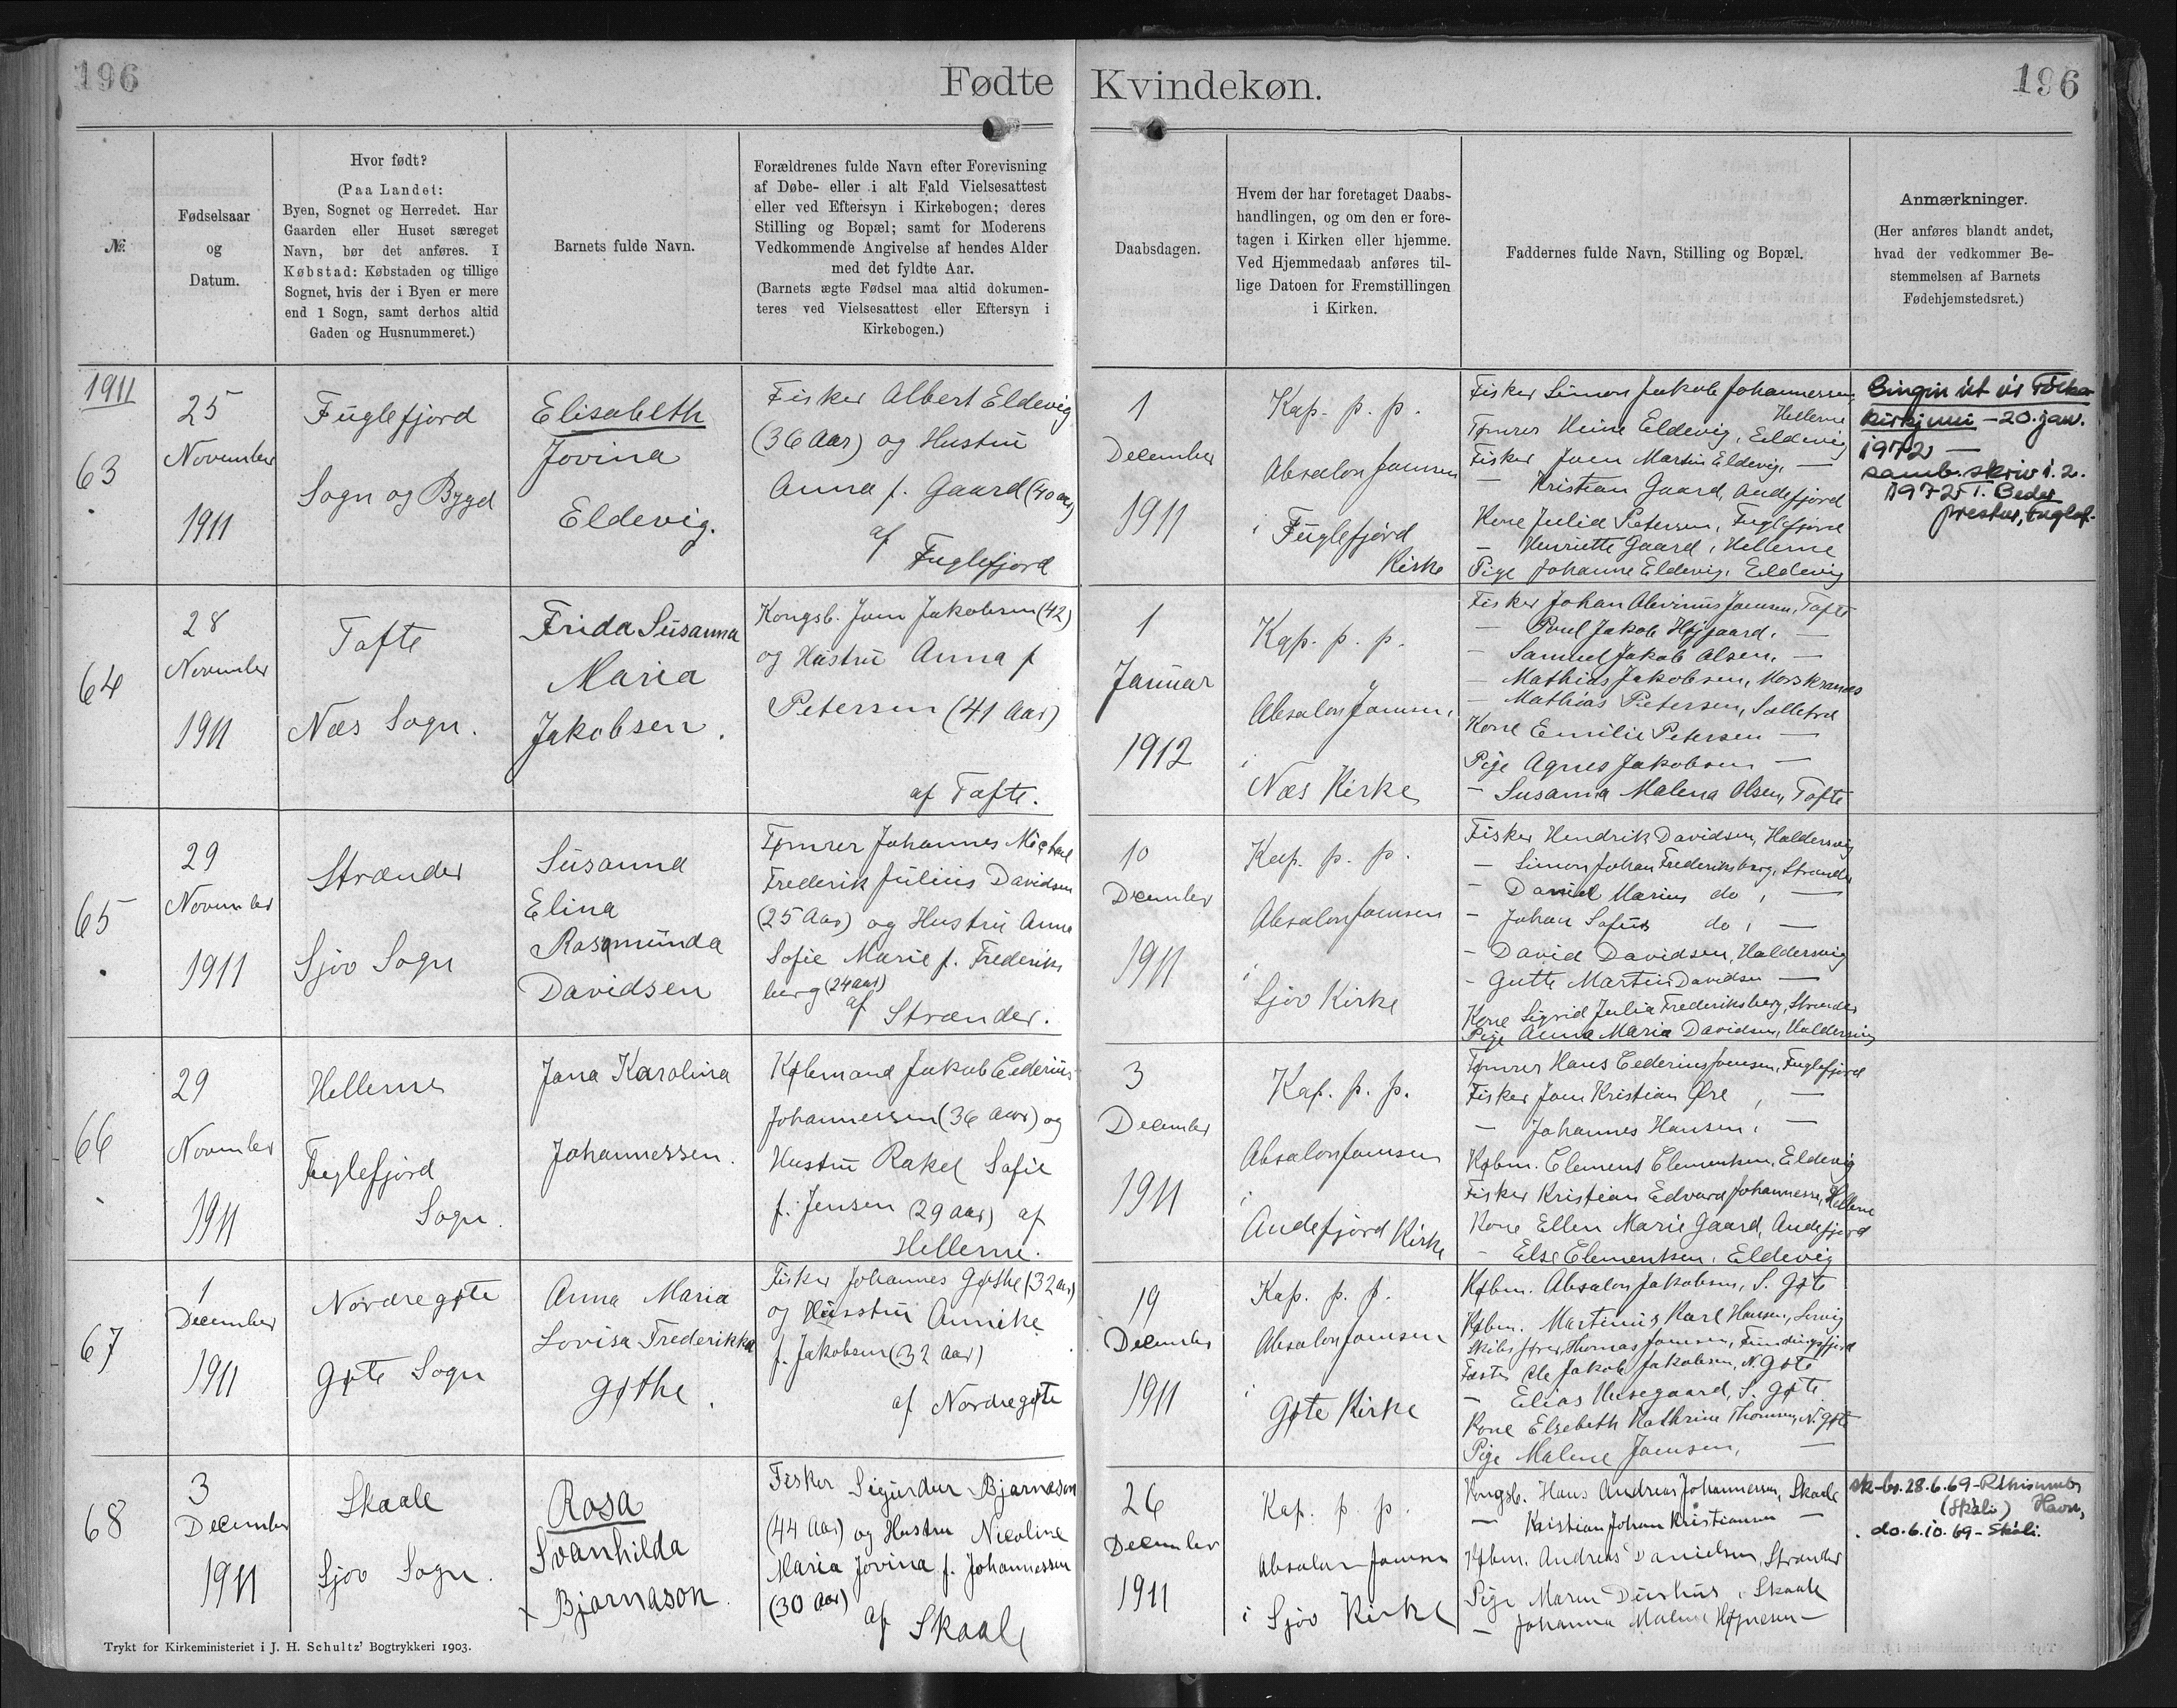 196
Fødte
Kvindekøn.
196
№.
Fødselsaar
og
Datum.
Hvor født?
(Paa Landet:
Byen, Sognet og Herredet. Har
Gaarden eller Huset særeget
Navn, bør det anføres. I
Købstad: Købstaden og tillige
Sognet, hvis der i Byen er mere
end 1 Sogn, samt derhos altid
Gaden og Husnummeret.)
Barnets fulde Navn.
Forældrenes fulde Navn efter Forevisning
af Døbe- eller i alt Fald Vielsesattest
eller ved Eftersyn i Kirkebogen; deres
Stilling og Bopæl; samt for Moderens
Vedkommende Angivelse af hendes Alder
med det fyldte Aar.
(Barnets ægte Fødsel maa altid dokumen-
teres ved Vielsesattest eller Eftersyn i
Kirkebogen.)
Daabsdagen.
Hvem der har foretaget Daabs-
handlingen, og om den er fore-
tagen i Kirken eller hjemme.
Ved Hjemmedaab anføres til-
lige Datoen for Fremstillingen
i Kirken.
Faddernes fulde Navn, Stilling og Bopæl.
Anmærkninger.
(Her anføres blandt andet,
hvad der vedkommer Be-
stemmelsen af Barnets
Fødehjemstedsret.)
1911
63
25
November
1911
Fuglefjord
Sogn og Bygd
Elisabeth
Jovina
Eldevig.
Fisker Albert Eldevig
(36 Aar) og Hustru
Anna f. Gaard (40 aar)
af Fuglefjord
1
December
1911
Kap. p. p.
Absalon Joensen
i Fuglefjord
Kirke
Fisker Simon Jakob Johannessen,
Hellerne
Tømrer Heine Eldevig, Eldevig
Fisker Joen Martin Eldevig, —
— Kristian Gaard, Andefjord
Kone Julia Petersen, Fuglefjord
— Henriette Gaard, Hellerne
Pige Johanne Eldevig, Eldevig
Gingin út úr Fólka-
kirkjuni – 20. jan.
1972 —
samb. skriv 1. 2.
1972 T. Beder
prestur, Fuglef.
64
28
November
1911
Tofte
Næs Sogn.
Frida Susanna
Maria
Jakobsen.
Kongsb. Joen Jakobsen (42)
og Hustru Anna f
Petersen (41 Aar)
af Tofte.
1
Januar
1912
Kap. p. p.
Absalon Joensen,
i
Næs Kirke
Fisker Johan Alvinus Joensen, Tofte
— Poul Jakob Højgaard, —
— Samuel Jakob Olsen, —
— Mathias Jakobsen, Morskranes
— Mathias Petersen, Selletræ
Kone Emilie Petersen —
Pige Agnes Jakobsen —
— Susanna Malena Olsen, Tofte
65
29
November
1911
Strænder
Sjov Sogn
Susanna
Elina
Rosamunda
Davidsen
Tømrer Johannes Michael
Frederik Julius Davidsen
(25 Aar) og Hustru Anna
Sofie Marie f. Frederiks
berg (24 aar)
af Strænder.
10
December
1911
Kap. p. p.
Absalon Joensen
i
Sjov Kirke
Fisker Hendrik Davidsen, Haldersvig
— Simon Johan Frederiksberg, Strænder
— Daniel Marius do, —
— Johan Sofus do, —
— David Davidsen, Haldersvig
— Gutte Martin Davidsen —
Kone Sigrid Julia Frederiksberg, Strænder
Pige Anna Maria Davidsen, Haldersvig
66
29
November
1911
Hellerne
Fuglefjord
Sogn.
Jana Karolina
Johannessen.
Købmand Jakob Cederius
Johannessen (36 Aar) og
Hustru Rakel Sofie
f. Jensen (29 aar) af
Hellerne.
3
December
1911
Kap. p. p.
Absalon Joensen
i
Andefjord Kirke
Tømrer Hans Cederius Joensen, Fuglefjord
Fisker Joen Kristian Øre, —
— Johannes Hansen, —
Købm. Clemens Clementsen, Eldevig
Fisker Kristian Edvard Johannessen, Hellerne
Kone Ellen Marie Gaard, Andefjord
— Else Clementsen, Eldevig
67
1
December
1911
Nordregøte
Gøte Sogn
Anna Maria
Lovisa Frederikka
Gøthe.
Fisker Johannes Gøthe (32 aar)
og Husstru Annike
f. Jakobsen (32 Aar)
af Nordregøte
19
December
1911
Kap. p. p.
Absalon Joensen
i
Gøte Kirke
Købm. Absalon Jakobsen, S. Gøte
Købm. Martinus Karl Hansen, Lervig
Skibsfører Thomas Joensen, Fundingsfjord
Fæster Ole Jakob Jakobsen, N. Gøte
— Elias Husegaard, S. Gøte
Kone Elsebeth Kathrine Thomsen, N. Gøte
Pige Malene Joensen, —
68
3
December
1911
Skaale
Sjov Sogn.
Rosa
Svanhilda
x Bjarnason.
Fisker Sigurdur Bjarnason
(44 Aar) og Hustru Nicoline
Maria Jovina f. Johannessen
(30 Aar)
af Skaale
26
December
1911
Kap. p. p.
Absalon Joensen
i Sjov Kirke
Kngsb. Hans Andreas Johannessen, Skaale
— Kristian Johan Kristiansen —
Købm. Andreas Danielsen, Strænder
Pige Maren Durhus, Skaale
— Johanna Malene Højnesen —
sk-br. 28.6.69-
(Skáli) Havn,
do. 6.10.69 – Skáli.
Trykt for Kirkeministeriet i J. H. Schultz' Bogtrykkeri 1903.